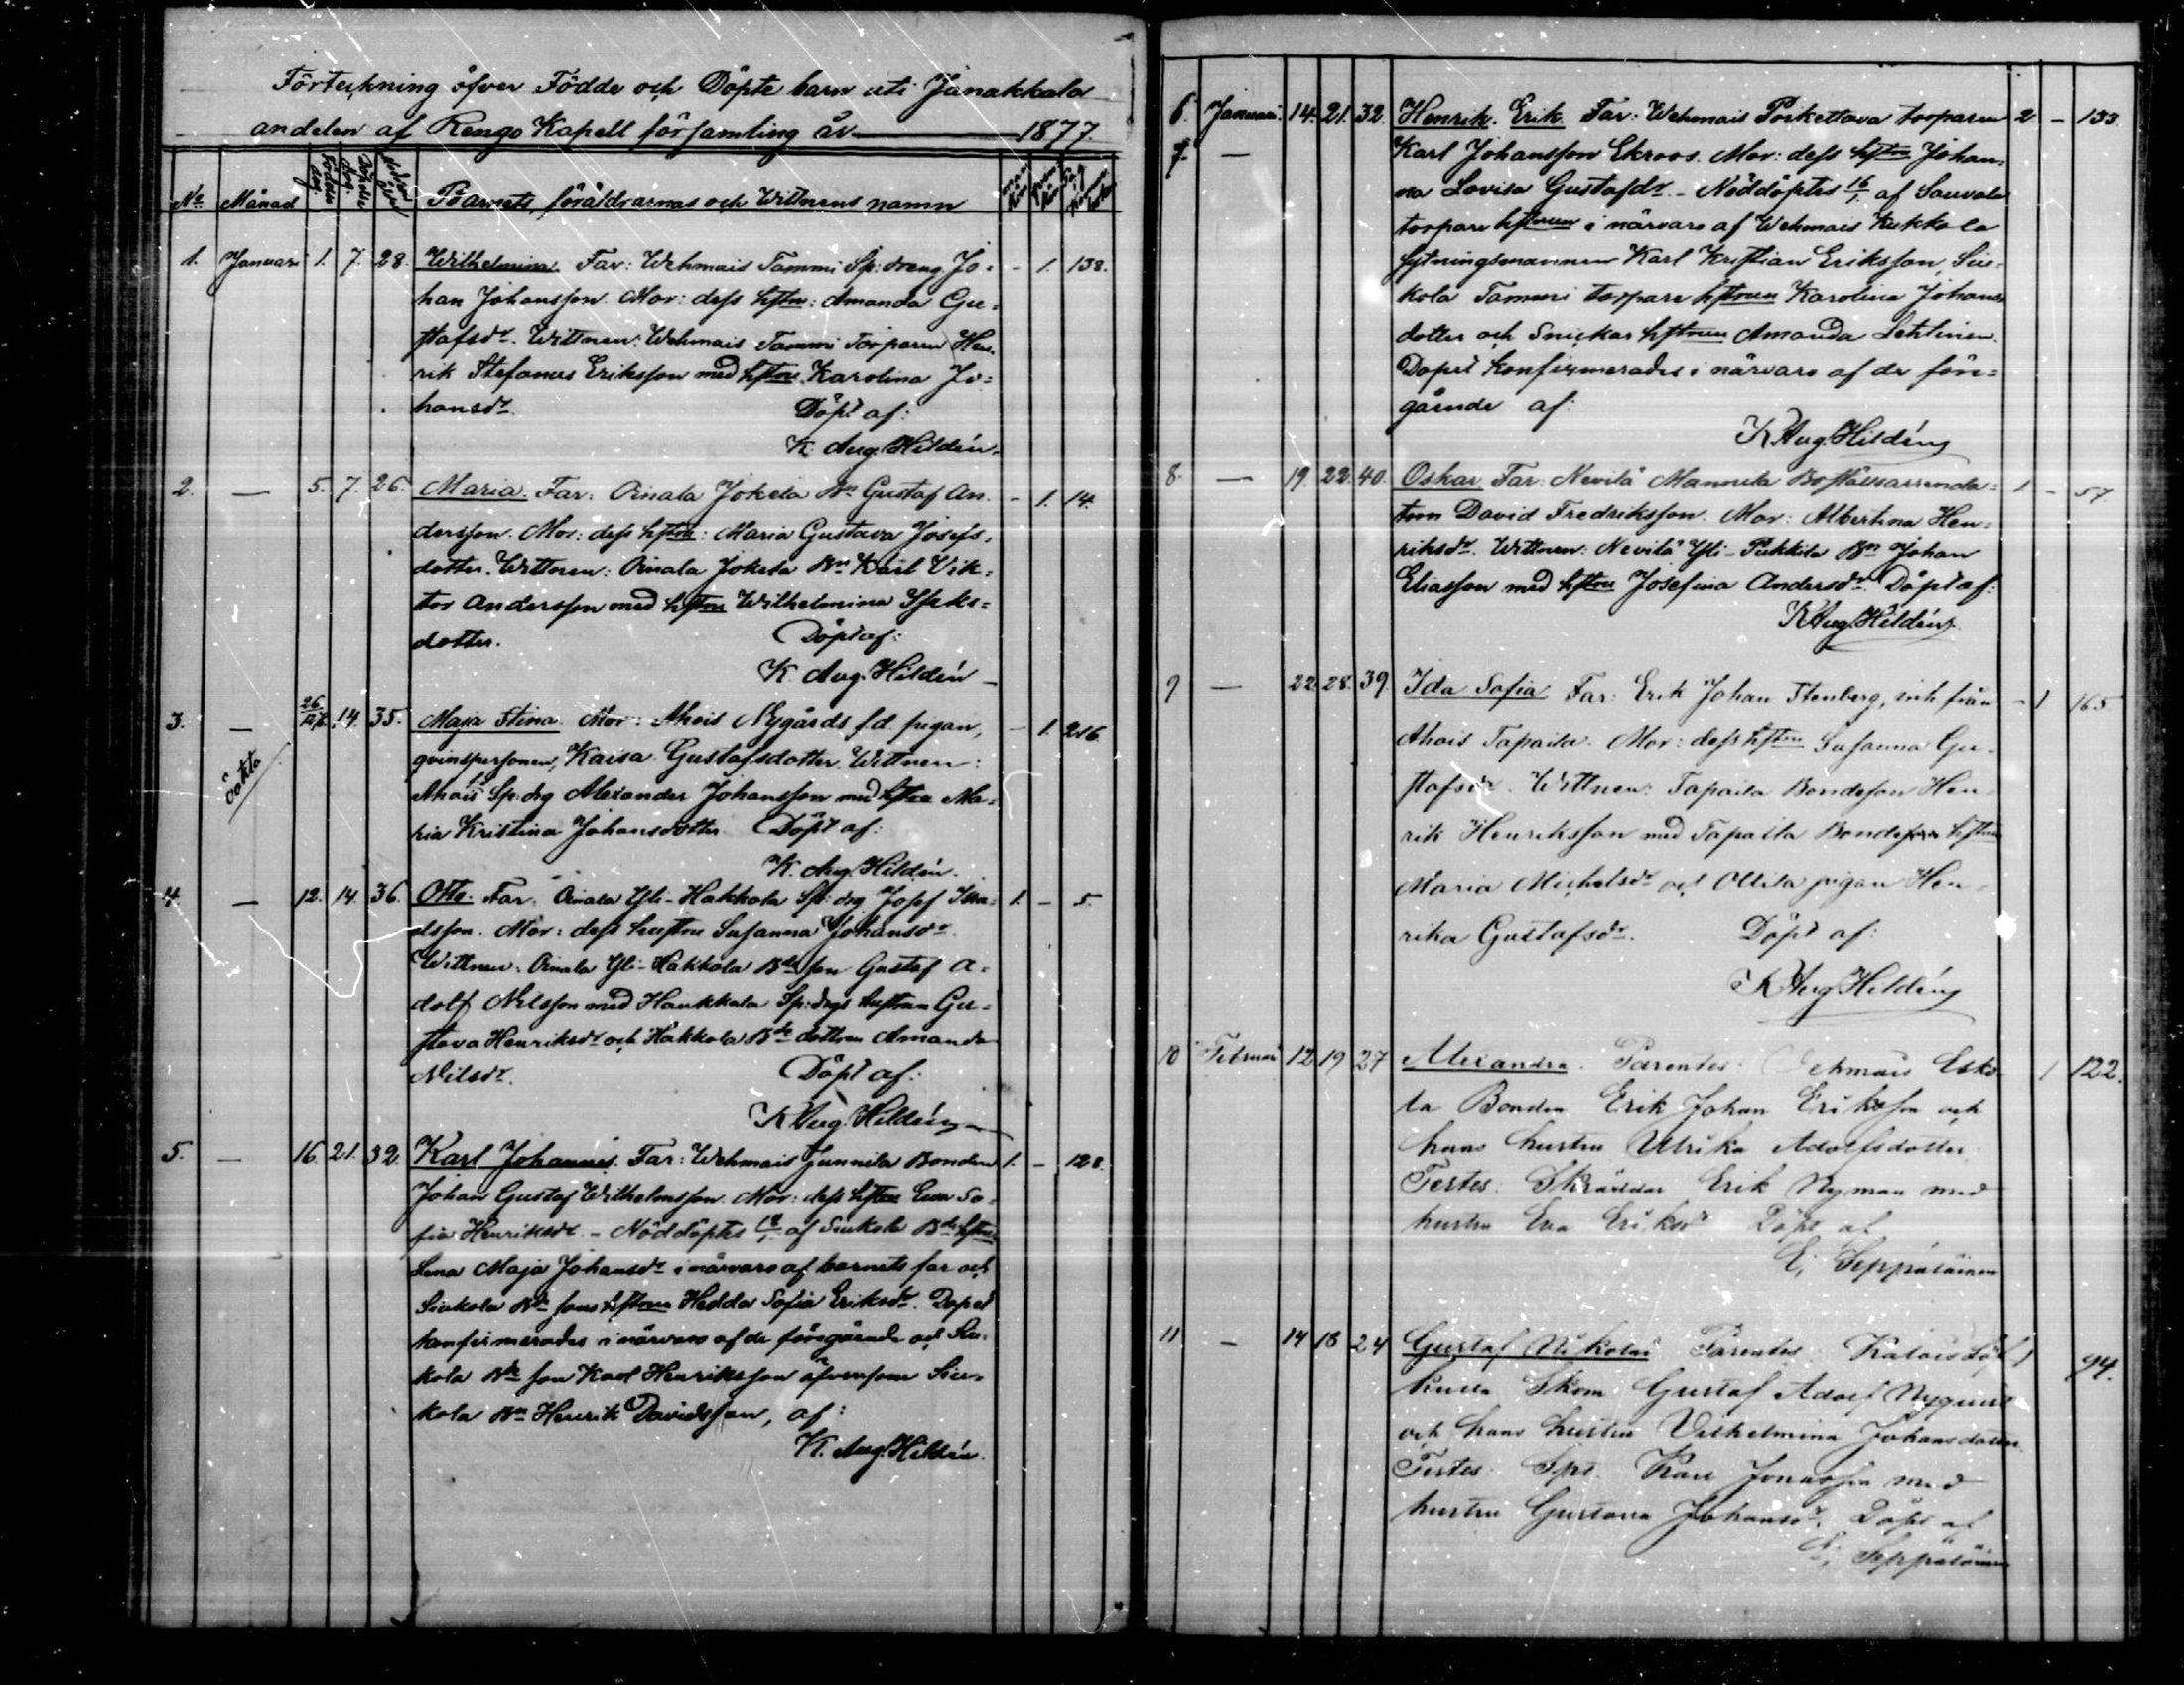 Förteckning öfver Födde och Döpte barn uti Janakkala
andelen af Rengo Kapell församling år 1877.
No Månad Födelse dag Döpelse dag Moders ålder Barnets, föräldrarnas och Wittnens namn
1. Januari 1. 7. 28. Wilhelmina. Far: Wehmais Tammi Sp: dreng Jo= - 1. 138.
han Johansson. Mor: dess hstru: Amanda Gu=
stafsdr. Wittnen: Wehmais Tammi Torparen Hen=
rik Stefanus Eriksson med hstru Karolina Jo=
hansdr. Döpt af:
K. Aug. Hildén.
2. — 5. 7. 26. Maria. Far: Oinala Jokela Bn Gustaf An= - 1. 14.
dersson. Mor: dess hstru: Maria Gustava Josefs=
dotter. Wittnen: Oinala Jokela Bn Karl Vik=
tor Andersson med hstru Wilhelmina Isaks=
dotter. Döpt af:
K. Aug. Hildén
3. — 26/12 14. 35. Maja Stina. Mor: Ahois Nygårds f.d. pigan, - 1. 216.
oäkta
qvinspersonen, Kaisa Gustafsdotter. Wittnen:
Ahois Sp: drg Alexander Johansson med hstru Ma=
ria Kristina Johansdotter Döpt af:
K. Aug. Hildén.
4. — 12. 14. 36. Otto. Far: Oinala Yli-Hakkola Sp: drg Josef Isra= 1. - 5.
elsson. Mor: dess hustru Susanna Johansdr.
Wittnen: Oinala Yli-Hakkola Bde son Gustaf A=
dolf Nilsson med Haukkala Sp: drgs hustrun Gu=
stava Henriksdr och Hakkola Bde dottren Amanda
Nilsdr. Döpt af:
K Aug. Hildén
5. — 16. 21. 32. Karl Johannes. Far: Wehmais Junnila Bonden 1. - 128.
Johan Gustaf Wilhelmsson. Mor: dess hstru Eva So=
fia Henriksdr. - Nöddöptes af Siukola Bde hstru
Lena Maja Johansdr i närvaro af barnets far och
Siukola Bde sons hstrun Hedda Sofia Eriksdr. Dopet
konfirmerades i närvaro af de föregående och Siu=
kola Bde son Karl Henriksson äfvensom Siu=
kola Bn Henrik Davidsson, af:
K. Aug. Hildén.
6. Januari 14. 21. 32. Henrik. Erik. Far: Wehmais Porkettava torparen 2 - 133.
7. — Karl Johansson Ekroos. Mor: dess hstru Johan=
na Lovisa Gustafsdr. - Nöddöptes 16/1 af Sauvala
torpare hstrun i närvaro af Wehmais Kukkola
sytningsmannen Karl Kristian Eriksson, Siu=
kola Tammi torpare hstrun Karolina Johans
dotter och Snickar hstrun Amanda Lehtinen.
Dopet konfirmerades i närvaro af de före=
gående af:
K Aug. Hildén
8. — 19. 22. 40. Oskar. Far: Nevilä Mannila Boställsarrenda= 1 - 57
torn David Fredriksson. Mor: Albertina Hen=
riksdr. Wittnen: Nevilä Yli-Pukkila Bn Johan
Eliasson med hstru Josefina Andersdr. Döpt af:
K Aug. Hildén
9 — 22. 28. 39. Ida Sofia Far: Erik Johan Stenberg, inh från - 1 165
Ahois Tapaila. Mor: dess hstru Susanna Gu=
stafsdr. Wittnen: Tapaila Bondeson Hen=
rik Henriksson med Tapaila Bonde hstrun
Maria Michelsdr och Ollila pigan Hen=
rika Gustafsdr. Döpt af:
K Aug. Hildén
10 Februari 12 19 27 Alexandra. Parentes: Vehmais Esko 1 122.
la Bonden Erik Johan Eriksson och
hans hustru Ulrika Adolfsdotter.
Testes: Skräddar Erik Nyman med
hustru Eva Eriksdr Döpt af
E. Seppäläinen
11 — 14 18 24 Gustaf Nikolai Parentes: Kalois 1 94.
Skom. Gustaf Adolf Nyqvist
och hans hustru Vilhelmina Johansdotter.
Testes: Spt. Karl Jonasson med
hustru Gustava Johansdr. Döpt af
E. Seppäläinen